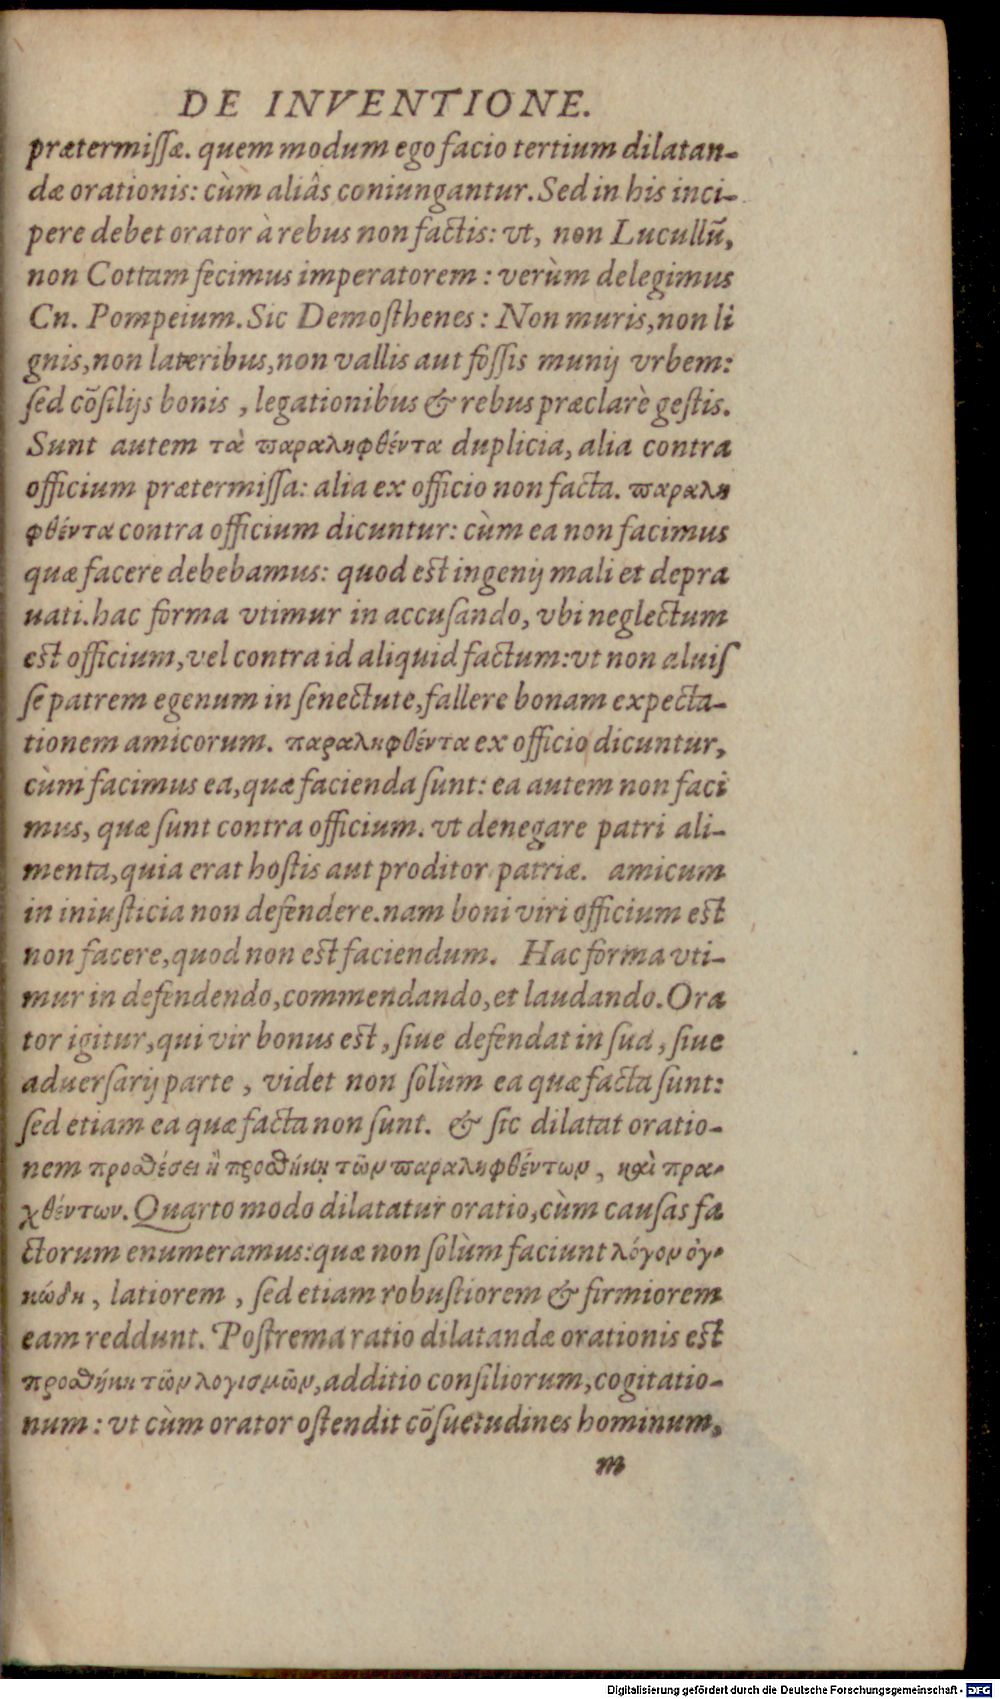 DE INVENTIONE.
prætermissæ. quem modum ego facio tertium dilatan-
dæ orationis: cùm aliâs coniungantur. Sed in his inci-
pere debet orator à rebus non factis: vt, non Lucullũ,
non Cottam fecimus imperatorem: verùm delegimus
Cn. Pompeium. Sic Demosthenes: Non muris, non li
gnis, non lateribus, non vallis aut fossis munij vrbem:
sed cõsilijs bonis, legationibus & rebus præclarè gestis.
Sunt autem τὰ παραληφθέντα duplicia, alia contra
officium prætermissa: alia ex officio non facta. παραλη
φθέντα contra officium dicuntur: cùm ea non facimus
quæ facere debebamus: quod est ingenij mali et depra
uati. hac forma vtimur in accusando, vbi neglectum
est officium, vel contra id aliquid factum: vt non aluis
se patrem egenum in senectute, fallere bonam expecta-
tionem amicorum. παραληφθέντα ex officio dicuntur,
cùm facimus ea, quæ facienda sunt: ea autem non faci
mus, quæ sunt contra officium. vt denegare patri ali-
menta, quia erat hostis aut proditor patriæ. amicum
in iniusticia non defendere. nam boni viri officium est
non facere, quod non est faciendum. Hac forma vti-
mur in defendendo, commendando, et laudando. Ora
tor igitur, qui vir bonus est, siue defendat in sua, siue
aduersarij parte, videt non solùm ea quæ facta sunt:
sed etiam ea quæ facta non sunt. & sic dilatat oratio-
nem προσθέσει ἢ προσθήκῃ τῶν παραληφθέντων, καὶ πρα-
χθέντων. Quarto modo dilatatur oratio, cùm causas fa
ctorum enumeramus: quæ non solùm faciunt λόγον ὀγ-
κώδη, latiorem, sed etiam robustiorem & firmiorem
eam reddunt. Postrema ratio dilatandæ orationis est
προσθήκη τῶν λογισμῶν, additio consiliorum, cogitatio-
num: vt cùm orator ostendit cõsuetudines hominum,
m
Digitalisierung gefördert durch die Deutsche Forschungsgemeinschaft - DFG